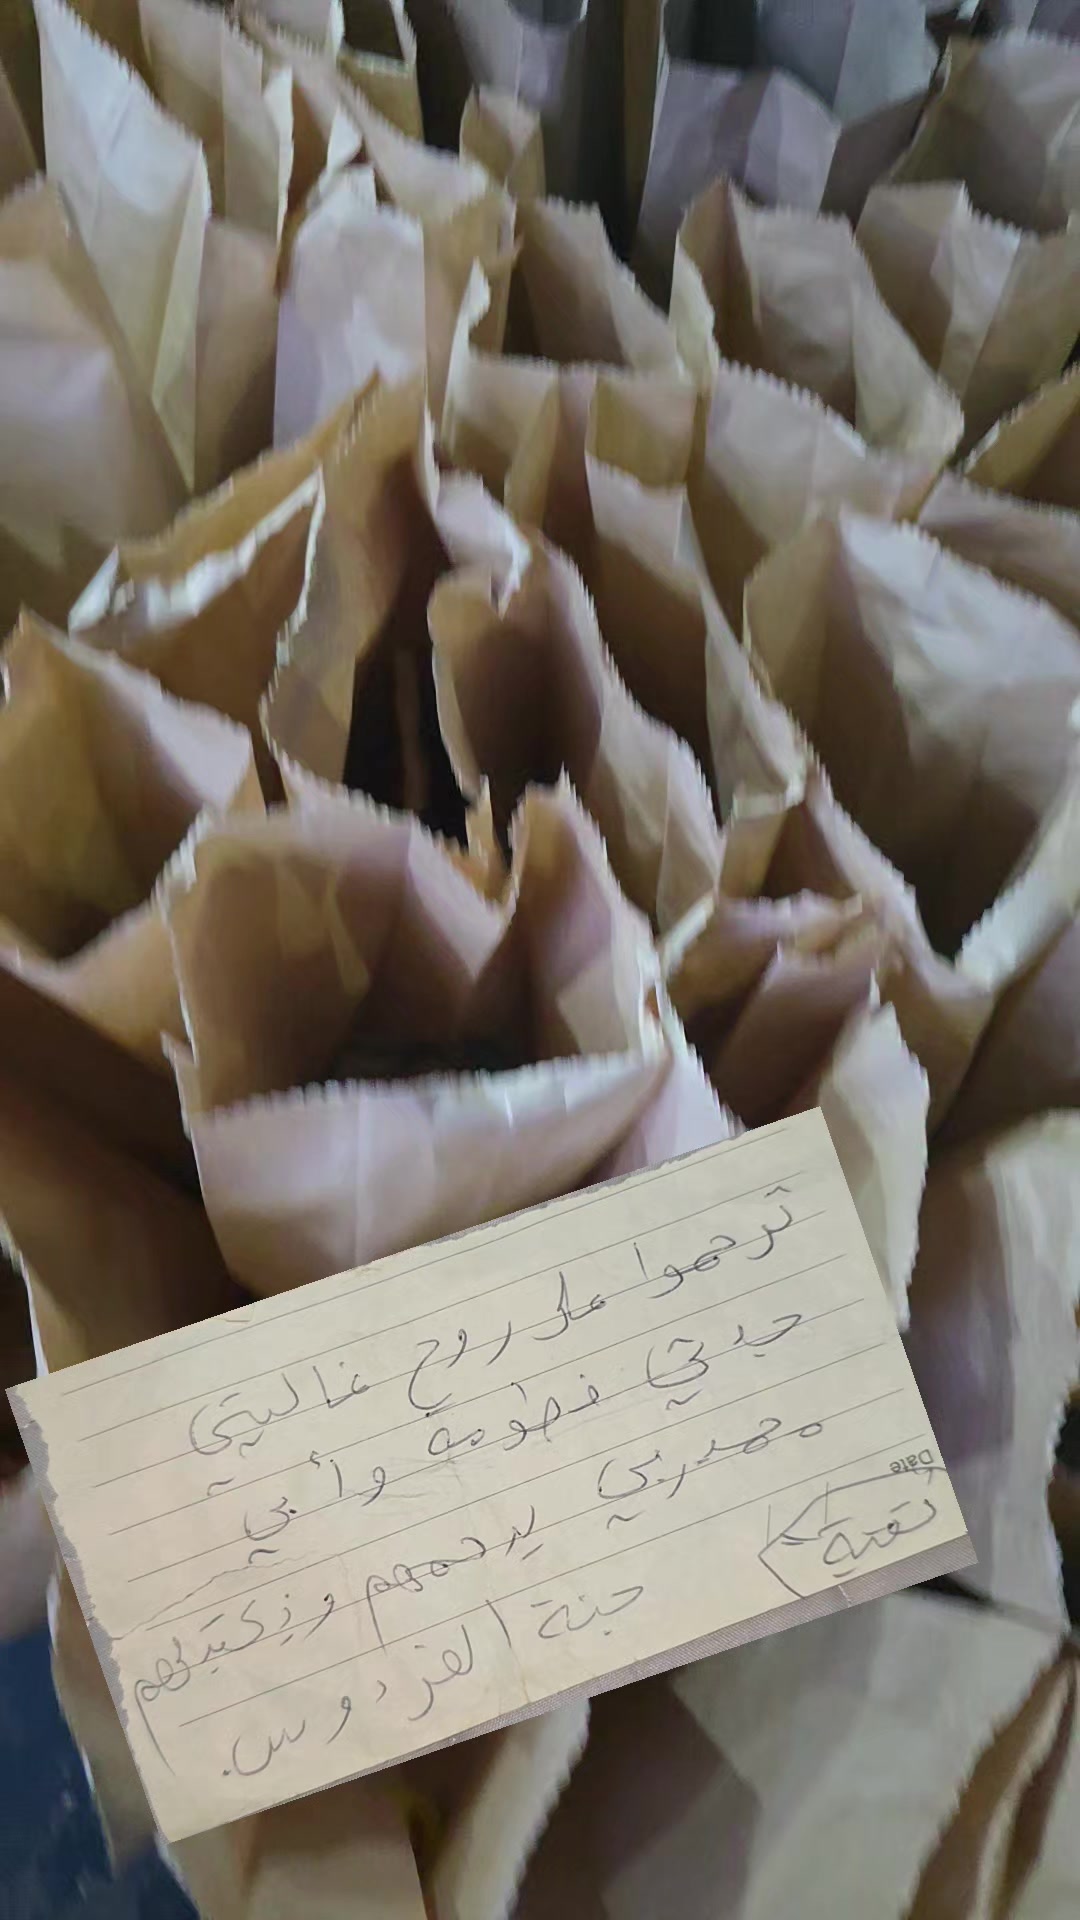 ترحموا على روح غاليتي
جدتي فطومة وأبي
محمد ربي يرحمهم ويكتبلهم
جنة الفردوس.
Date
تقية